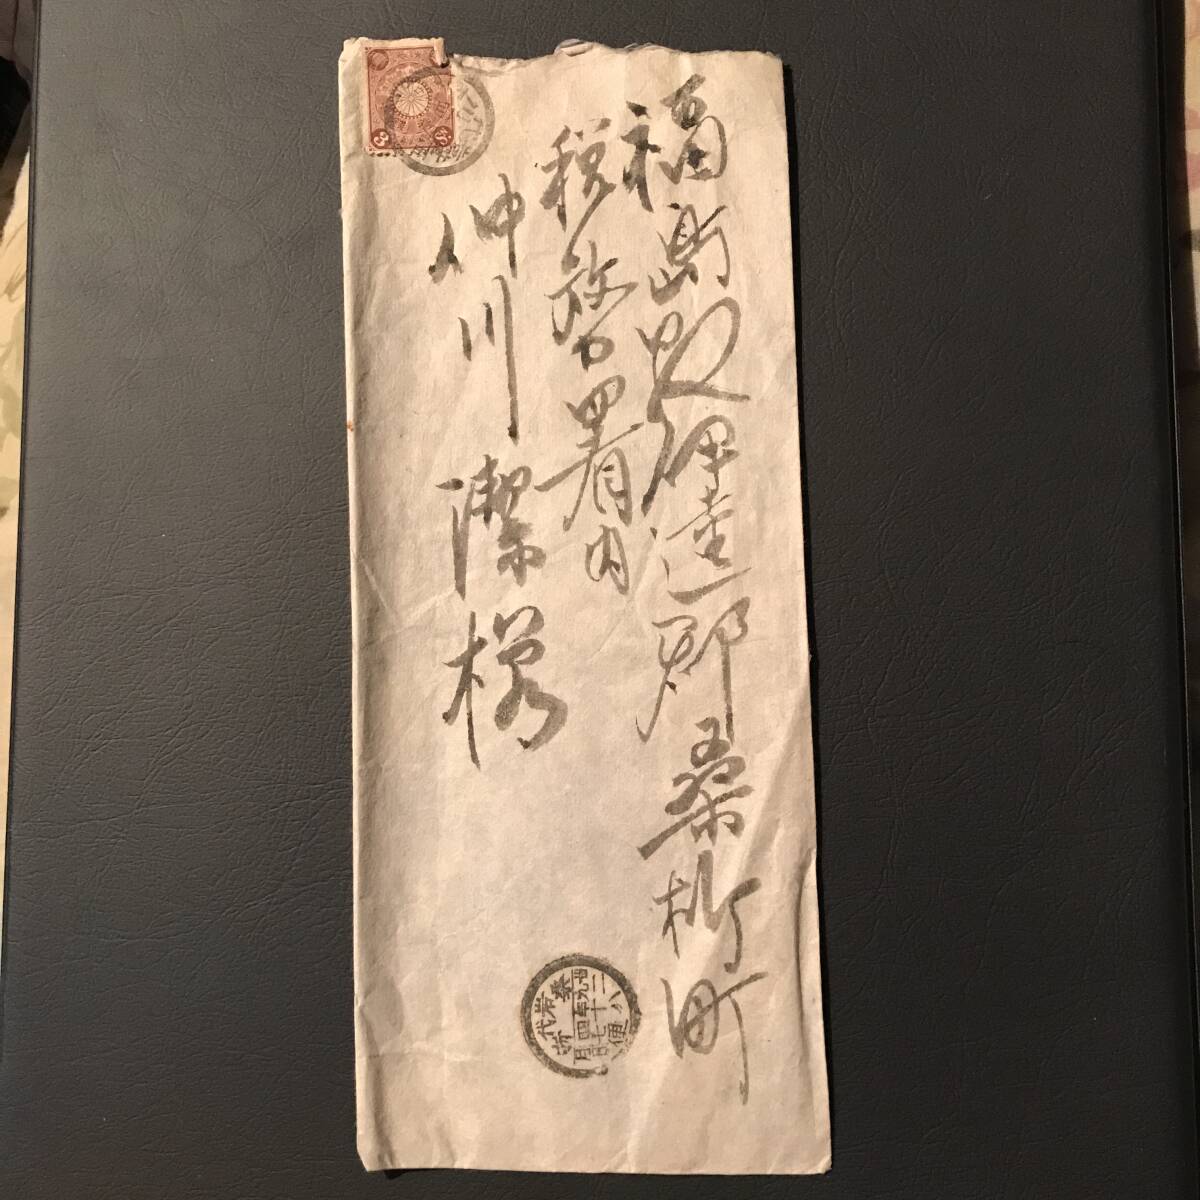 福島県伊達郡桑折町
税務署内
仲川潔様
岩代
桑折
四月
二十七日
便
3 Sn.